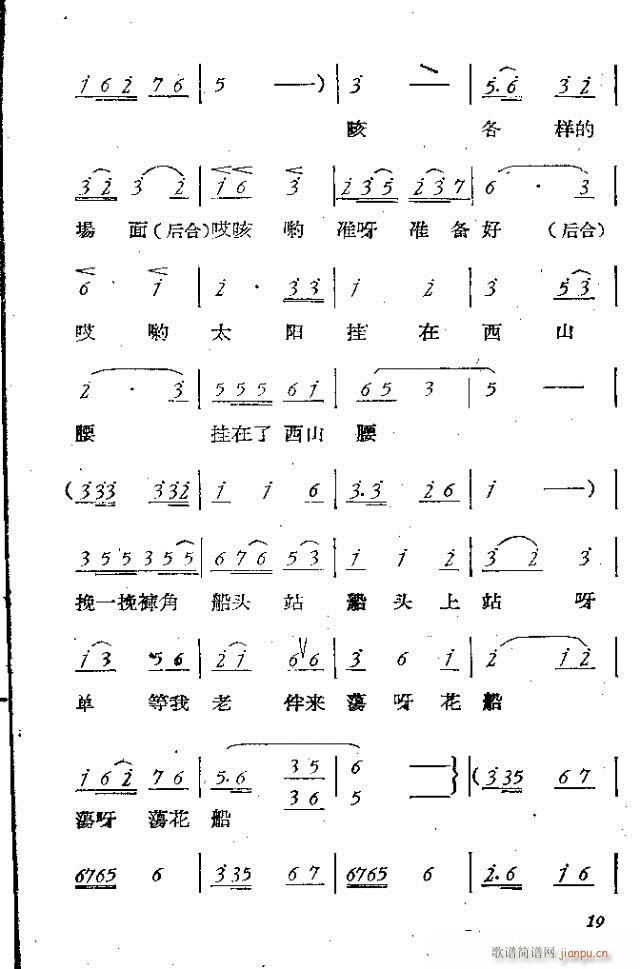 i 6 2 7 6 | 5 — ) | 3 | 5. 6 3 2 |
咳 各 样的
3 2 3 2 | i 6 3 | 2 3 5 2 3 7 | 6 · 3 |
場 面(后合)哎咳 喲 准呀 准 备 好 (后合)
6 i | 2 · 3 3 | i 2 | 3 5 3 |
哎 喲 太 阳 挂 在 西 山
2 · 3 | 5 5 5 6 i | 6 5 3 | 5 — |
腰 挂在了 西山 腰
(3 3 3 3 3 2 | i i 6 | 3. 3 2 6 | i — )
3 5 5 3 5 5 | 6 7 6 5 3 | i i 2 | 3 2 3 |
挽一挽褲角 船头 站 船 头 上 站 呀
i 3 5 6 | 2 i 6 6 | 3 6 i | 2 i 2 |
单 等我 老 伴来 蕩 呀 花 船
i 6 2 7 6 | 5. 6 3 5 | 6 — } ( 3 3 5 6 7 |
3 6 | 5 —
蕩呀 蕩花 船
6765 6 | 3 3 5 6 7 | 6765 6 | 2. 6 i 6 |
19
歌谱简谱网 jianpu.cn